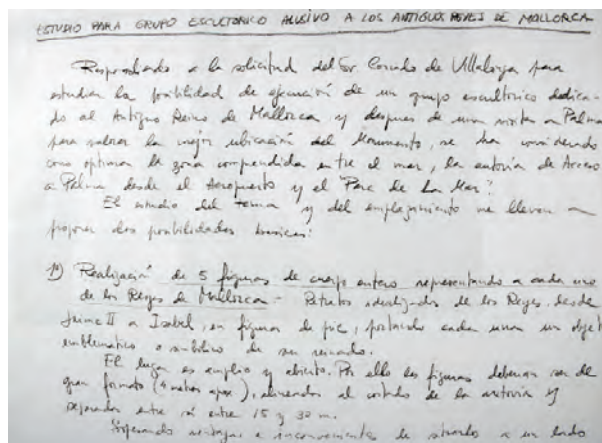 ESTUDIO PARA GRUPO ESCULTORICO ALUSIVO A LOS ANTIGUOS REYES DE MALLORCA
Respondiendo a la solicitud del Sr. Conrado de Villalonga para
estudiar la posibilidad de ejecución de un grupo escultórico dedica-
do al Antiguo Reino de Mallorca y despues de una visita a Palma
para valorar la mejor ubicación del Monumento, se ha considerado
como optima la zona comprendida entre el mar, la autovía de Acceso
a Palma desde el Aeropuerto y el "Parc de La Mar".
El estudio del tema y del emplazamiento me llevan a
proponer dos posibilidades basicas:
1º) Realización de 5 figuras de cuerpo entero representando a cada uno
de los Reyes de Mallorca - Retratos idealizados de los Reyes, desde
Jaime II a Isabel, en figuras de pie, portando cada una un objeto
emblematico o simbolico de su reinado.
El lugar es amplio y abierto. Por ello las figuras deberian ser de
gran formato (4 metros apox), alineadas al costado de la autovia y
separadas entre sí entre 15 y 30 m.
ventajas e inconvenientes de situarlas a un lado